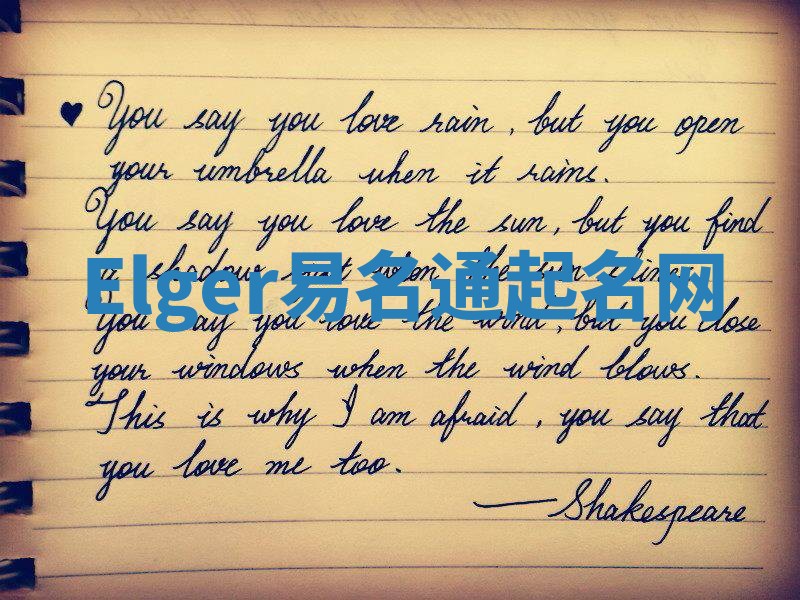 ♥ You say you love rain, but you open
your umbrella when it rains.
You say you love the sun, but you find
a shadow spot when the sun shines.
Elger易名通起名网
You say you love the wind, but you close
your windows when the wind blows.
This is why I am afraid, you say that
you love me too.
— Shakespeare